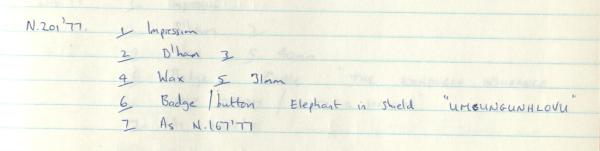 N.201'77. 1 Impression
2 D'ham 3
4 Wax 5 31mm
6 Badge/button Elephant in shield "UMGUNGUNHLOVU"
7 As N.167'77